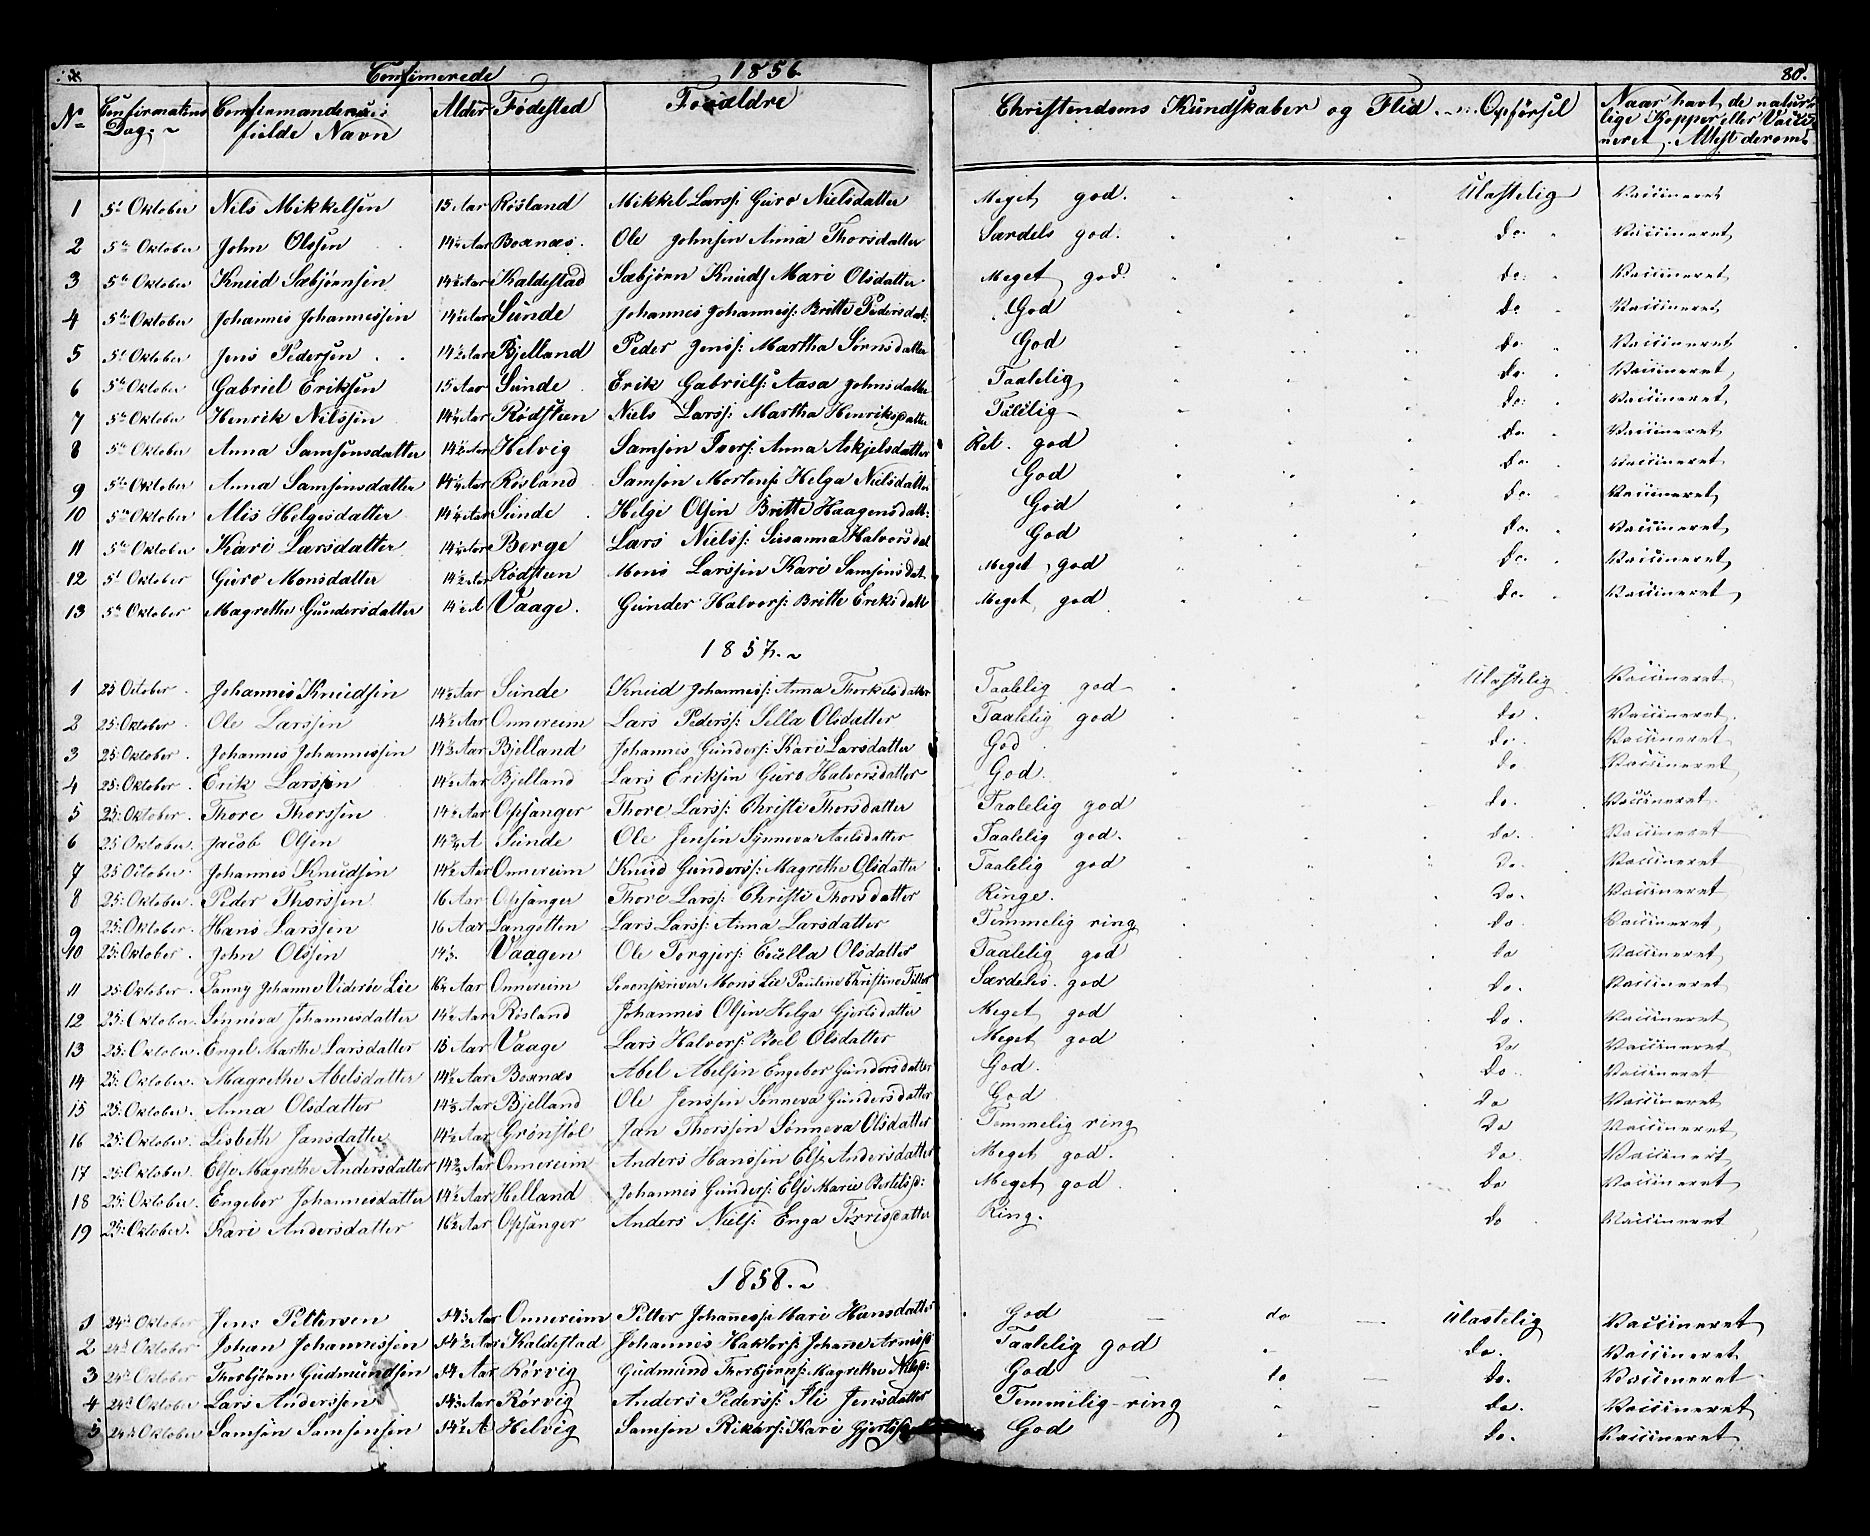 Confirmerede 1856 80.
No Confirmations Dag. Confirmandernes fulde Navn Alder Fødested Forældre Christendoms Kundskaber og Flid Opførsel Naar havt de naturlige Kopper eller Vaccineret. Attest derom
1 5t Oktober Nils Mikkelsen 15 Aar Røsland Mikkel Larss: Guro Nielsdatter Meget god. Ulastelig Vaccineret
2 5te Oktober John Olssen 14½ Aar Boxnæs. Ole Johnsen Anna Thorsdatter Særdels god. do. Vaccineret
3 5te Oktober Knud Sæbjørnsen 14½ Aar Kaldestad Sæbjørn Knuds Mari Olsdatter Meget god. do. Vaccineret
4 5te Oktober Johannes Johannessen 14½ Aar Sunde Johannes Johanness: Britte Pedersdat: God do Vaccineret
5 5t Oktober Jens Pedersen 14½ Aar Bjelland Peder Jenss: Martha Sørnsdatter God do. Vaccineret
6 5te Oktober Gabriel Eriksen 15 Aar Sunde Erik Gabriels: Aasa Johnsdatter Taalelig do. Vaccineret
7 5te Oktober Henrik Nilssen 14¼ Aar Rødsteen Niels Larss: Martha Henriksdatter Tålelig do. Vaccineret
8 5te Oktober Anna Samsonsdatter 14½ Aar Helvig Samson Ivers: Anna Askjelsdatter Ret god do. Vaccineret
9 5te Oktober Anna Samsonsdatter 14¼ Aar Røsland Samson Mortens: Helga Nielsdatter God do. Vaccineret
10 5te Oktober Alis Helgesdatter 14¼ Aar Sunde Helge Olsen Britte Haagensdatt: God do. Vaccineret
11 5te Oktober Kari Larsdatter 14¼ Aar Berge Lars Nielss: Susanna Halvorsdat God do. Vaccineret
12 5t Oktober Guro Monsdatter 14½ Aar Rødsteen Mons Larssen Kari Samsonsdat. Meget god do. Vaccineret
13 5te Oktober Magrethe Gundersdatter 14½ A Vaage. Gunder Halvors: Britte Eriksdatt Meget god do. Vaccineret
1857.
1 25 October Johannes Knudsen 14½ Aar Sunde Knud Johanness: Anna Thorkelsdatter Taalelig god Ulastelig Vaccineret
2 25: Oktober Ole Larssen 14½ Aar Onnereim Lars Pederss: Sella Olsdatter Taalelig god do. Vaccineret
3 25. Oktober Johannes Johannessen 14½ Aar Bjelland Johannes Gunders: Kari Larsdatter God do. Vaccineret
4 25. Oktober Erik Larssen 14½ Aar Bjelland Lars Eriksen Guro Halvorsdatter God. do Vaccineret
5 25. Oktober Thore Thorssen 14½ Aar Opsanger Thore Larss: Christi Thorsdatter Taalelig god do. Vaccineret
6 25 Oktober. Jacob Olsen 14¾ A Sunde Ole Jensen Synneva Axelsdatter Taalelig god. do. Vaccineret
7 25 October. Johannes Knudsen 14½ Aar Onnereim Knud Gunderss: Magrethe Olsdatter Taalelig god Do. Vaccineret
8 25: Oktober. Peder Thorssen 16 Aar Opsanger Thore Larss: Christi Thorsdatter Ringe. Do. Vaccineret
9 25: Oktober. Hans Larssen 16 Aar Langetten Lars Larss: Anna Larsdatter Temmelig ring do Vaccineret
10 25: Oktober John Olssen Vaagen Ole Torgjers: Olsdatter Taalelig god do Vaccineret
11 25: Oktober. Fanny Johanne Viderøe Lie Aar Onnereim Sorenskriver Mons Lie Pauline Christine Særdelis. god do. Vaccineret
12 25: Oktober. Sønneva Johannesdatter 14½ Aar Røsland Johannes Olsen Helga Gjertsdatter Meget god do. Vaccineret
13 25: Oktober. Engel Marthe Larsdatter 15 Aar Vaage Lars Halvors: Boel Olsdatter Meget god Do Vaccineret
14 25: Oktober. Magrethe Abelsdatter 14½ Aar Boxnæs Abel Abelsen Engebor Gundersdatter God. Do. Vaccineret
15 25: Oktober. Anna Olsdatter 14½ Aar Bjelland Ole Jenssen Sønneva Gundersdatter God Do Vaccineret
16 25: Oktober. Lisbeth Jansdatter 14½ Aar Grønstøl Jan Thorssen Sønneva Olsdatter Temmelig ring Do Vaccineret
17 25: Oktober. Else Magrethe Andersdatter 14⅔ Aar Onnereim Anders Hanssen Else Andersdatter Meget god. do. Vaccineret
18 25: Oktober. Engebor Johannesdatter 14½ Aar Helland Johannes Gunders: Else Marie Bertelsd: Meget god Do Vaccineret
19 25: Oktober. Kari Andersdatter 16½ Aar Opsanger Anders Niels: Enga Tørrisdatter Ring. do Vaccineret
1858.
1 24de Oktober Jens Pettersen Aar Onnereim Petter Johanness: Mari Hansdatter God do Ulastelig Vaccineret
2 24de Oktober Johan Johannessen 14½ Aar Kaldestad Johannes Haktors: Johane Taalelig god do. Vaccineret
3 24de Oktober Thorbjørn Gudmundsen 14 Aar Rørvig Gudmund Thorbjørns: Magrethe God do do. Vaccineret
4 24de Oktober Lars Anderssen Aar Rørvig Anders Pederss: Eli Jensdatter Temmelig ring do. Vaccineret
5 24de Oktober Samson Samsonsen 14½ A Helvig Samson Rikars: Kari God do. Vaccineret